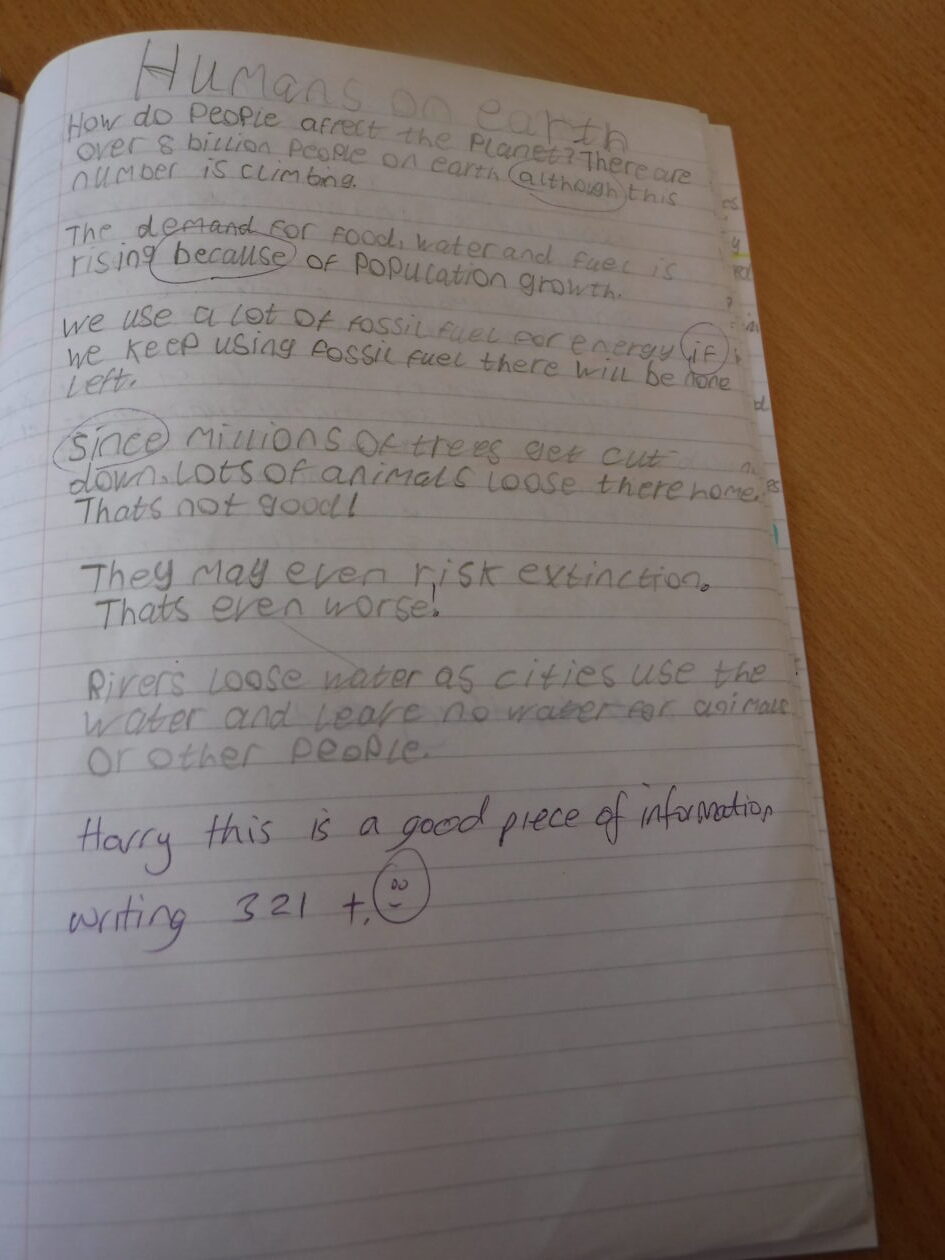 Humans on earth
How do people affect the planet? There are
over 8 billion people on earth although this
number is climbing.
The demand for food, water and fuel is
rising because of population growth.
We use a lot of fossil fuel for energy if
we keep using fossil fuel there will be none
left.
Since millions of trees get cut
down. Lots of animals loose there home.
Thats not good!
They may even risk extinction.
Thats even worse!
Rivers loose water as cities use the
water and leave no water for animals
or other people.
Harry this is a good piece of information
writing 321 +.